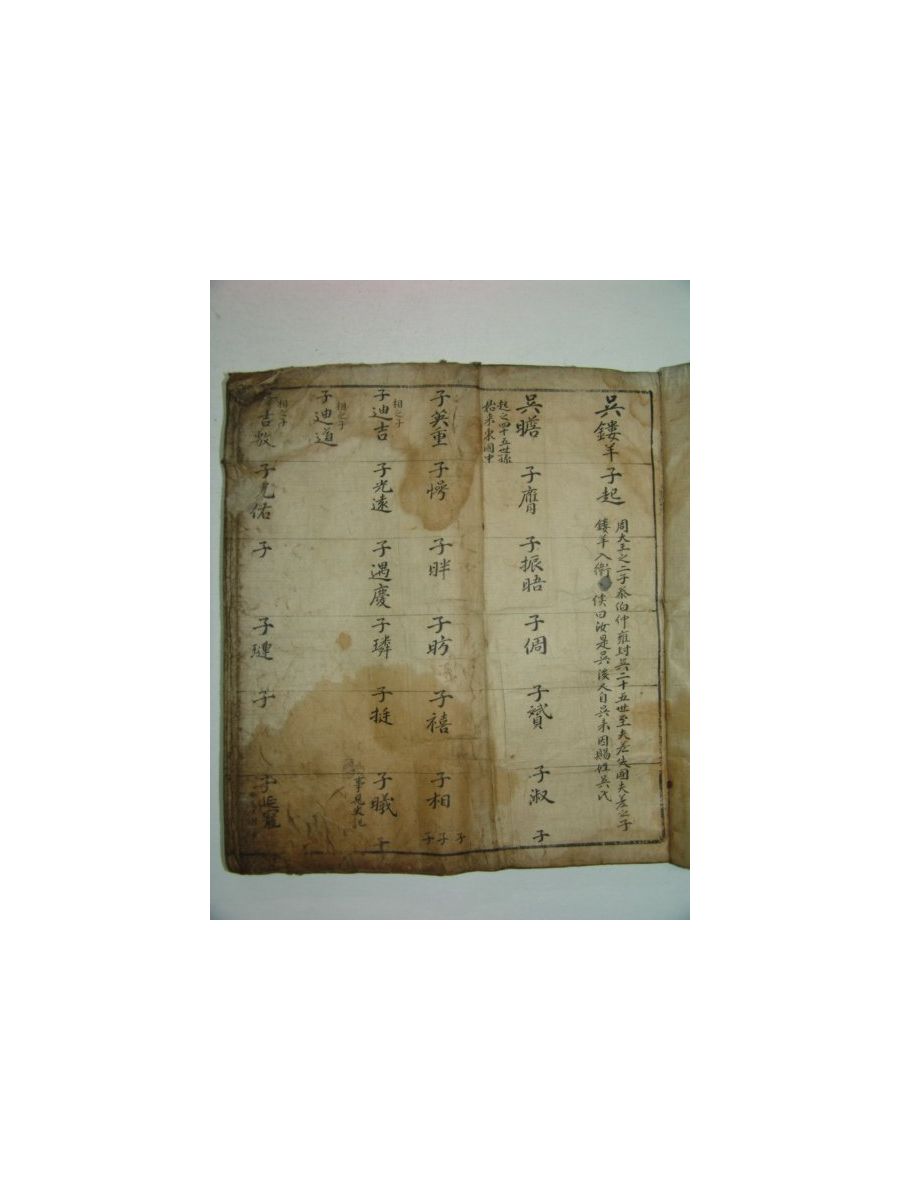 吳鏤羊 子起
周太王之二子泰伯仲雍封吳二十五世至夫差失國夫差之子
鏤羊入衛 侯曰汝是吳後人自吳來因賜姓吳氏
吳瞻 子膺 子振晤 子倜 子贇 子淑 子
起之四十五世孫
始来東國中
子英重 子愕 子眫 子昉 子禧 子相 子 子 子
子迪吉 子光遠 子遇慶 子璘 子挺 子曦 子
相之子
事見史記
子迪道
相之子
子吉敖 子光佑 子 子璉 子 子
相之子